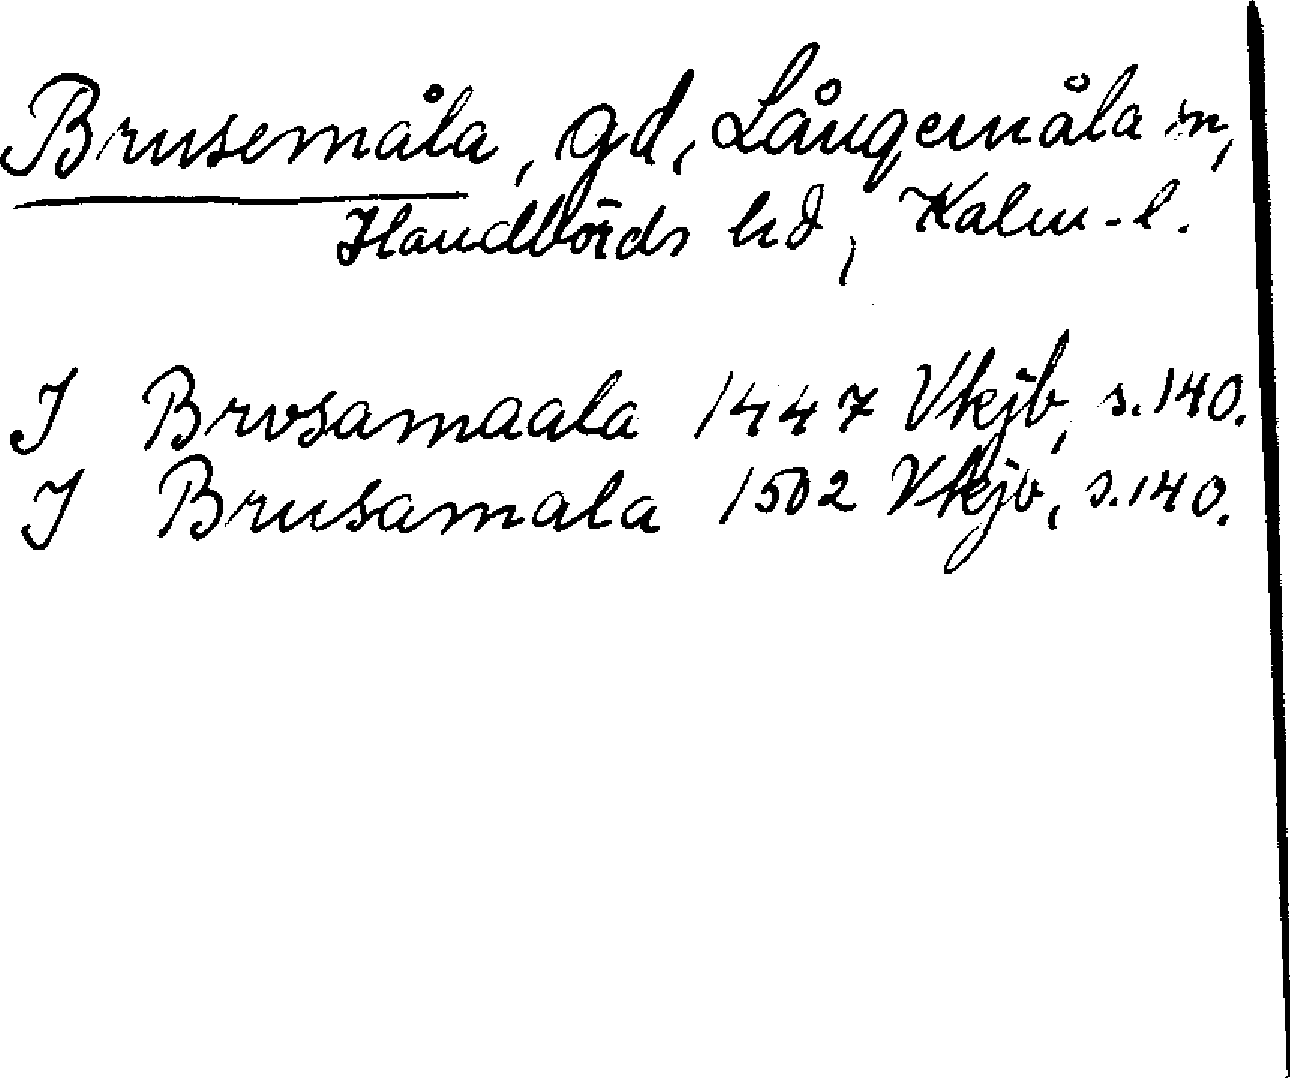 Brusemåla, gd, Långemåla sn,
Handbörds hd, Kalm-l.
I Brvsamaala 1447 Vkjb, s.140.
I Brusamala 1502 Vkjb, s.140.